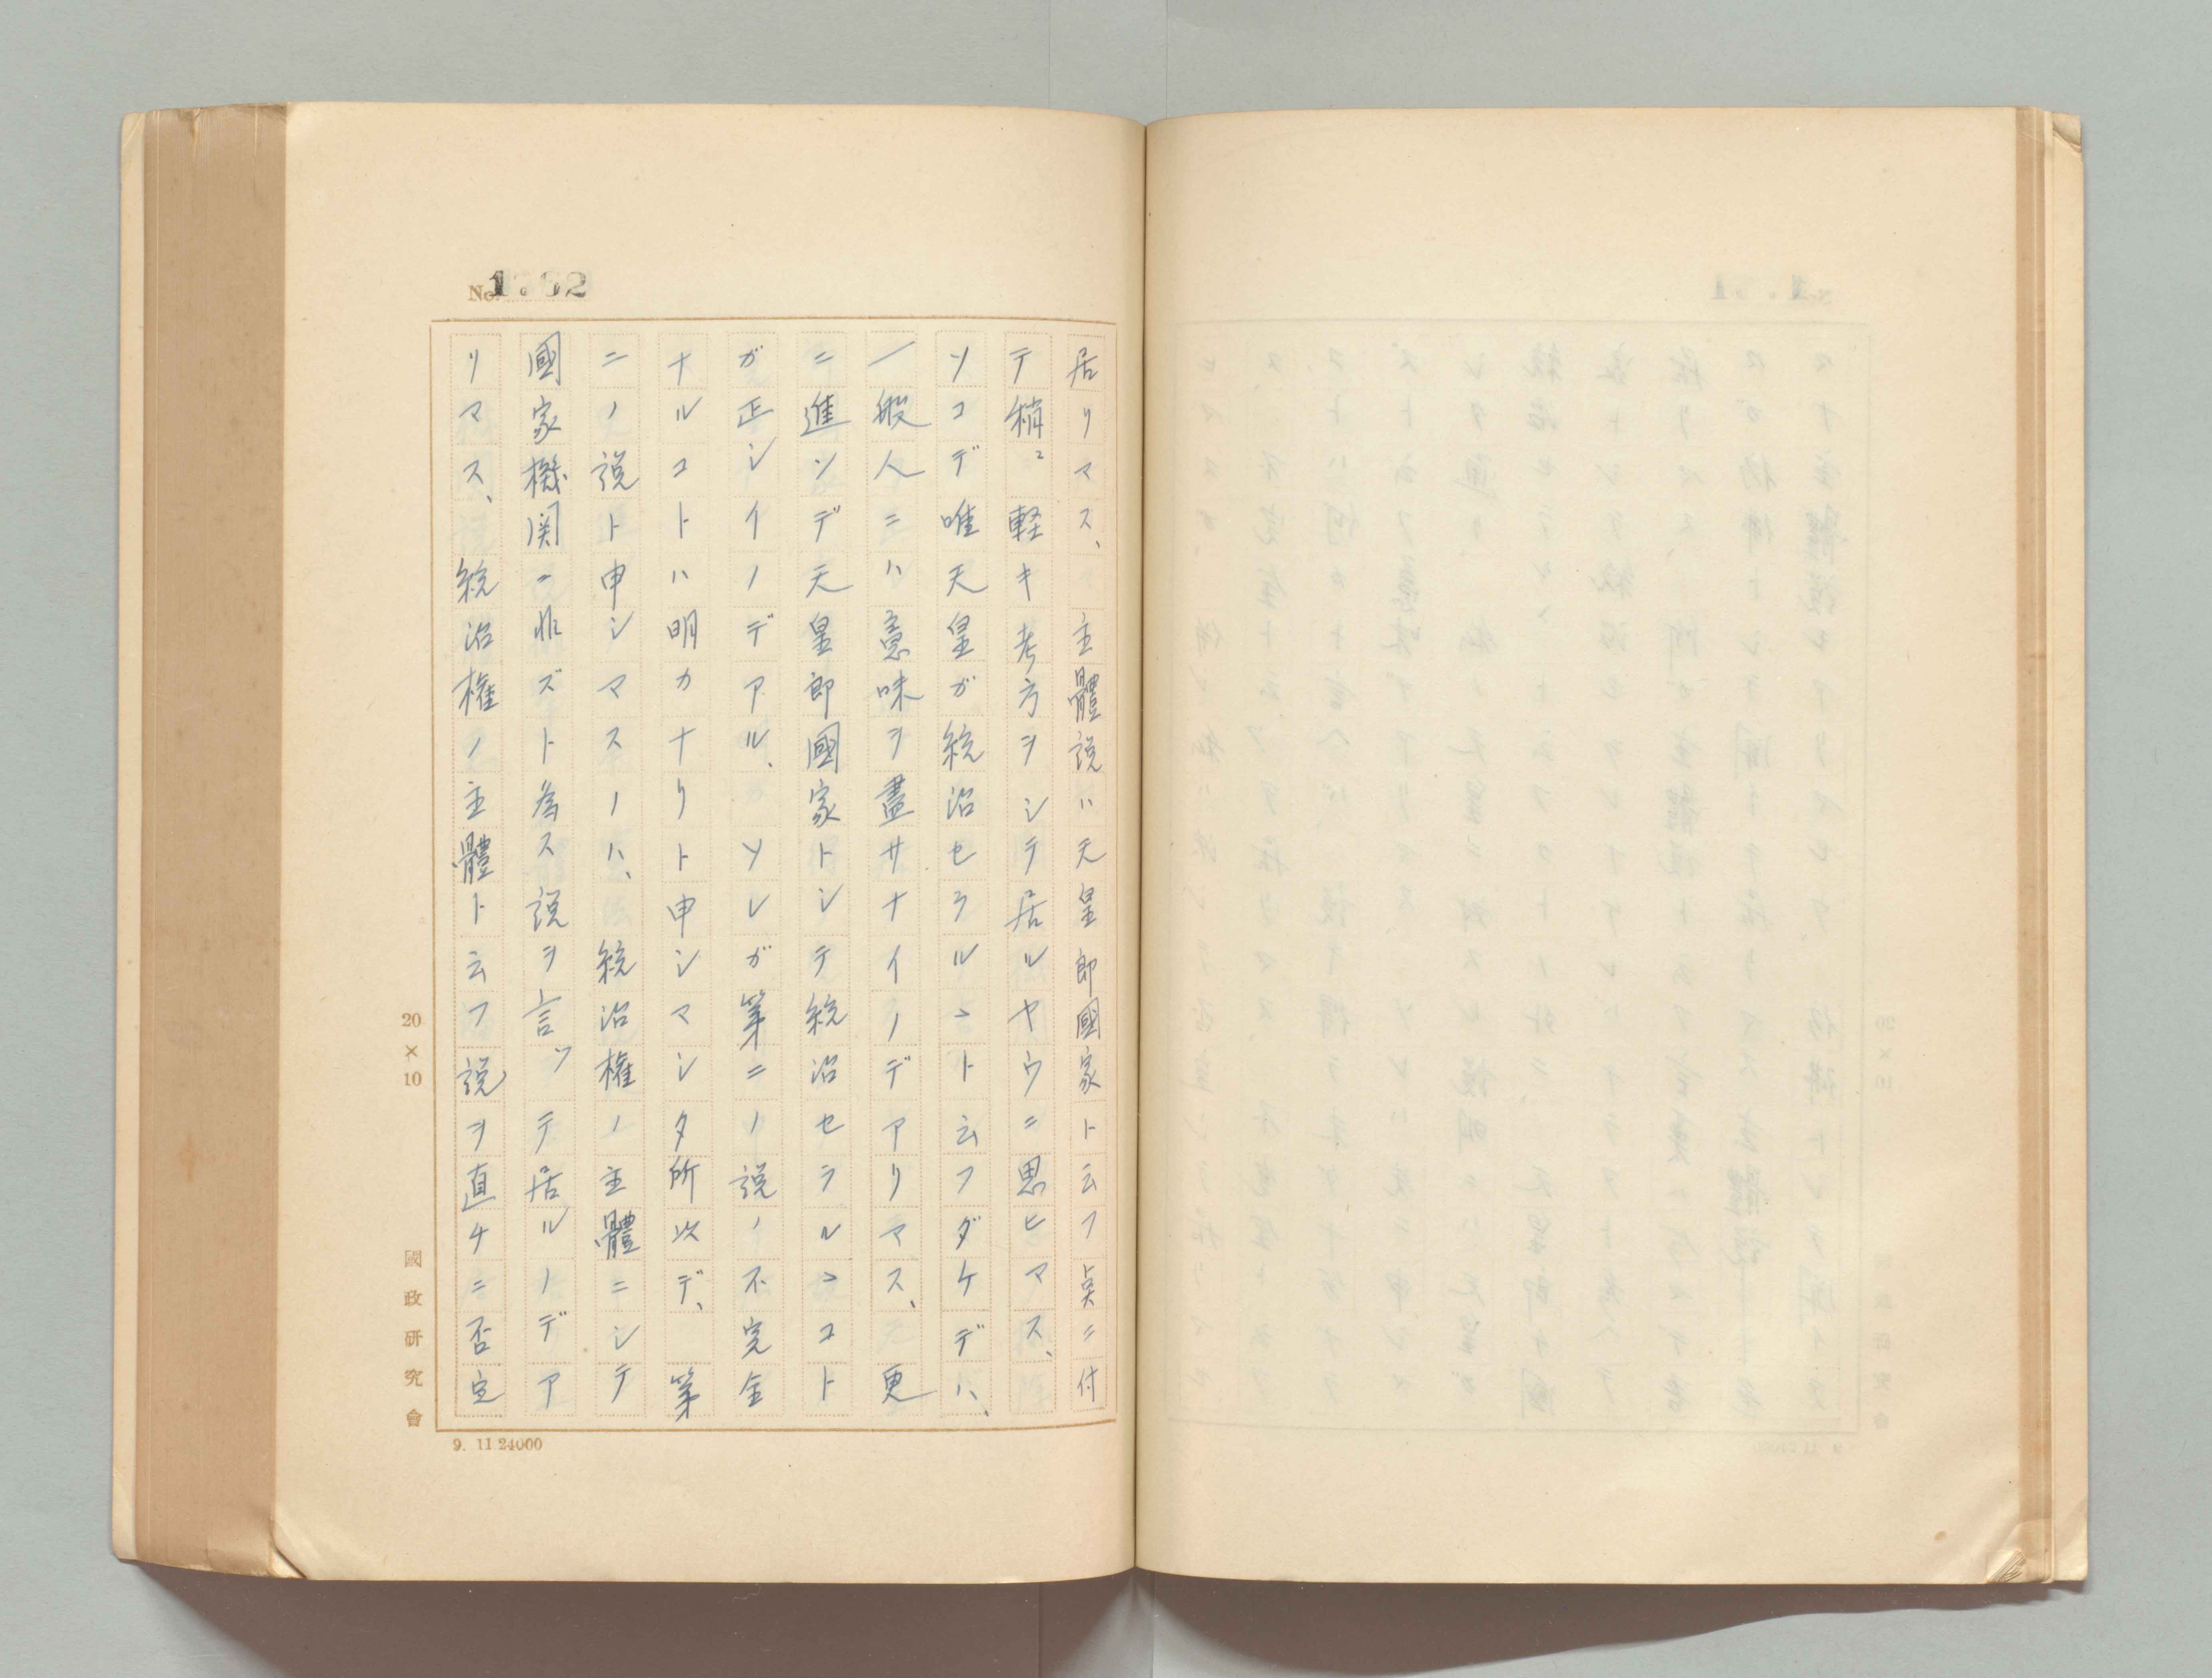 居リマス、主體説ハ天皇即國家ト云フ点ニ付
テ稍〻軽キ考方ヲシテ居ルヤウニ思ヒマス、
ソコデ唯天皇ガ統治セラルヽト云フダケデハ、
一般人ニハ意味ヲ盡サナイノデアリマス、更
ニ進ンデ天皇即國家トシテ統治セラルヽコト
ガ正シイノデアル、ソレガ第二ノ説ノ不完全
ナルコトハ明カナリト申シマシタ所以デ、第
二ノ説ト申シマスノハ、統治権ノ主體ニシテ
國家機関ニ非ズト為ス説ヲ言ッテ居ルノデア
リマス、統治権ノ主體ト云フ説ヲ直チニ否定
20×10
國政研究會
9. 11 24000